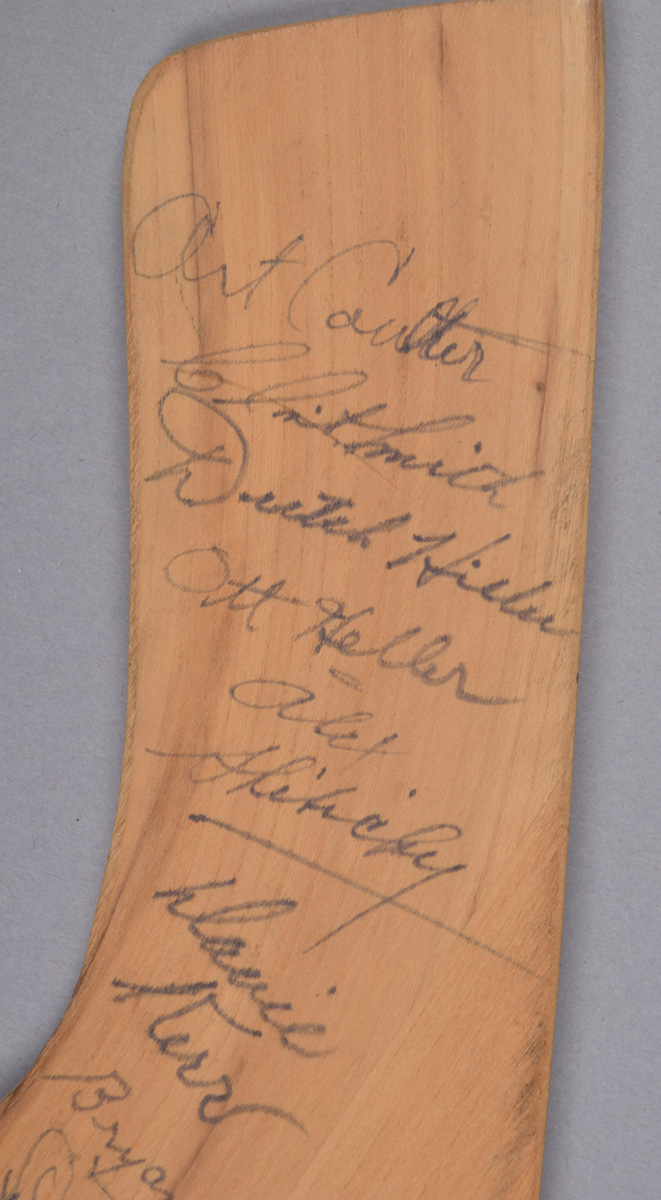 Art Coulter
Clint Smith
Dutch Hiller
Ott Heller
Alex
Shibicky
Davie
Kerr
Bryan